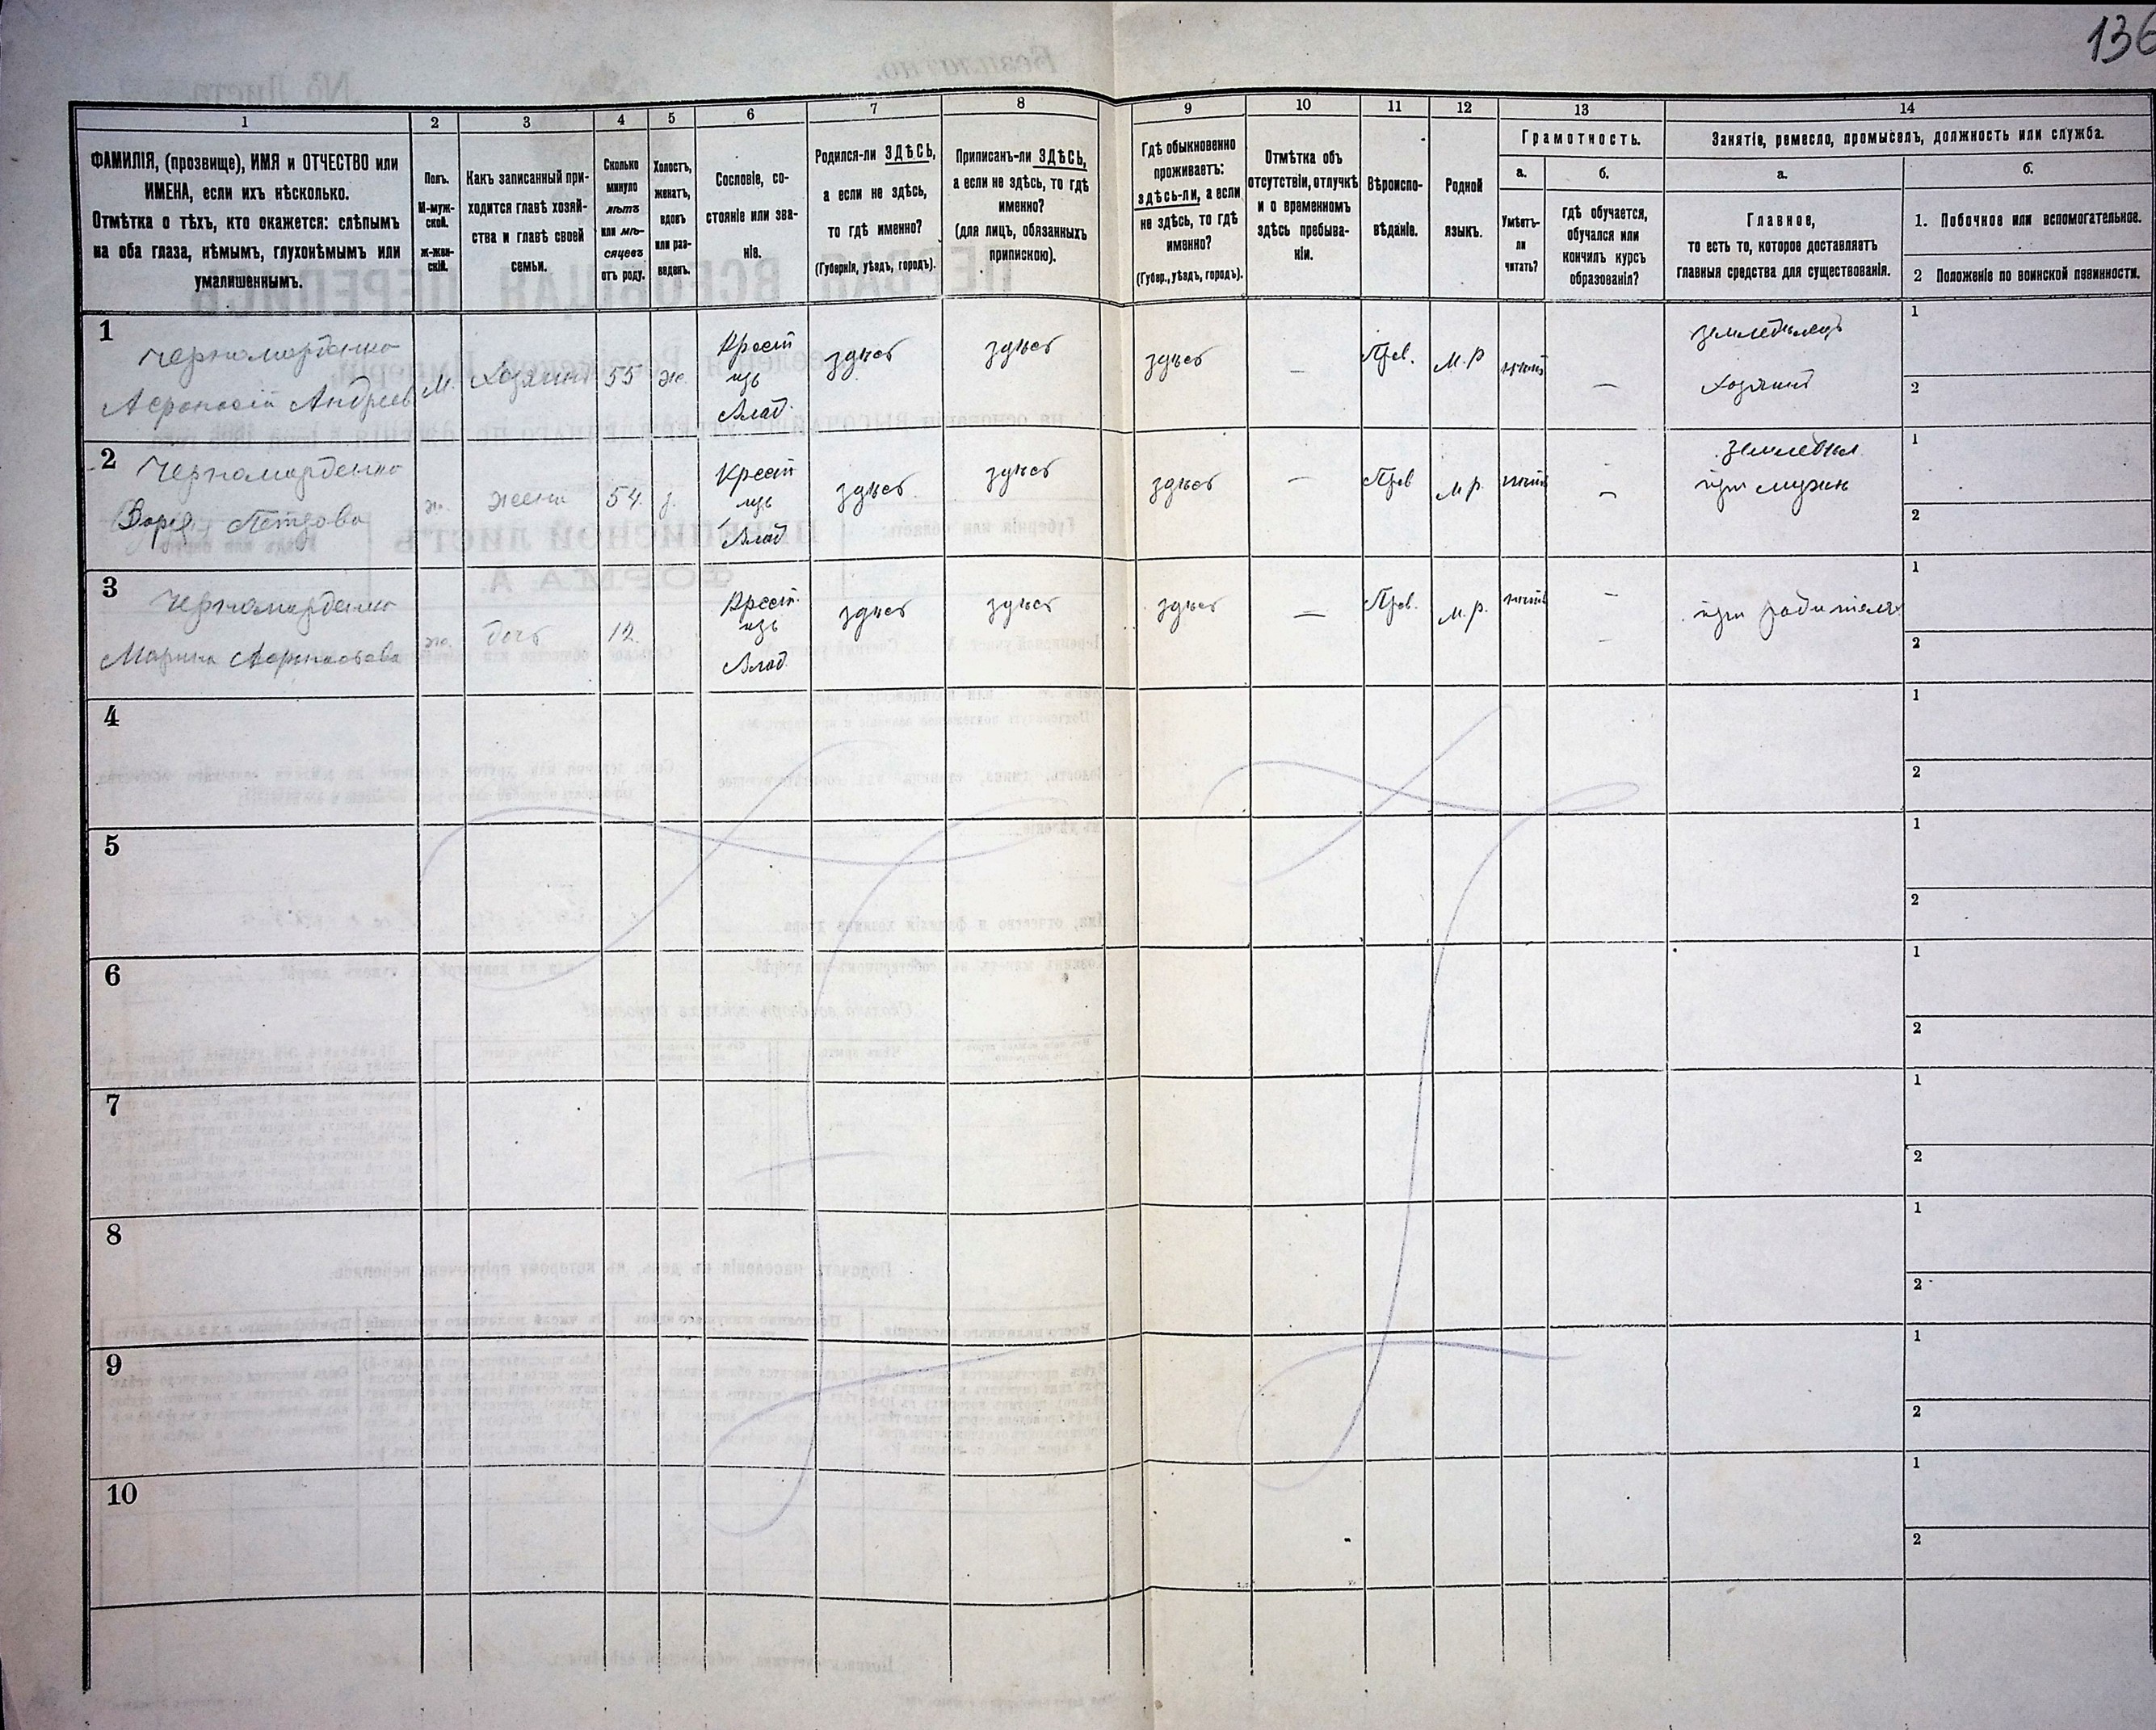 136
1
2
3
4
5
6
7
8
9
10
11
12
13
14
ФАМИЛІЯ, (прозвище), ИМЯ и ОТЧЕСТВО или
ИМЕНА, если ихъ нѣсколько.
Отмѣтка о тѣхъ, кто окажется: слѣпымъ
на оба глаза, нѣмымъ, глухонѣмымъ или
умалишеннымъ.
Полъ.
М-муж-
ской.
ж-жен-
скій.
Какъ записанный при-
ходится главѣ хозяй-
ства и главѣ своей
семьи.
Сколько
минуло
лѣтъ
или мѣ-
сяцевъ
отъ роду.
Холостъ,
женатъ,
вдовъ
или раз-
веденъ.
Сословіе, со-
стояніе или зва-
ніе.
Родился-ли ЗДѢСЬ,
а если не здѣсь,
то гдѣ именно?
(Губернія, уѣздъ, городъ).
Приписанъ-ли ЗДѢСЬ,
а если не здѣсь, то гдѣ
именно?
(для лицъ, обязанныхъ
припискою).
Гдѣ обыкновенно
проживаетъ:
здѣсь-ли, а если
не здѣсь, то гдѣ
именно?
(Губер., уѣздъ, городъ).
Отмѣтка объ
отсутствіи, отлучкѣ
и о временномъ
здѣсь пребыва-
ніи.
Вѣроиспо-
вѣданіе.
Родной
языкъ.
Грамотность.
а.
Умѣетъ-
ли
читать?
б.
гдѣ обучается,
обучался или
кончилъ курсъ
образованія?
Занятіе, ремесло, промыселъ, должность или служба.
а.
Главное,
то есть то, которое доставляетъ
главныя средства для существованія.
б.
1. Побочное или вспомогательное.
2 Положеніе по воинской повинности.
1
Черномарденко
Афонасій Андреев
М.
Хозяинъ
55
ж.
Крест
изъ
Влад.
здѣсь
здѣсь
здѣсь
—
Прав.
М.Р
нѣтъ
—
земледѣлецъ
Хозяинъ
1
2
2
Черномарденко
Варв. Петрова
ж.
жена
54.
з.
Крест
изъ
Влад
здѣсь
здѣсь
здѣсь
—
Прав
М.р.
нѣтъ
—
земледѣл.
при мужѣ
1
2
3
Черномарденко
Марина Афонасьева
ж.
дочь
12.
Крест.
изъ
Влад.
здѣсь
здѣсь
здѣсь
—
Прав.
М.р.
нѣтъ
—
при родителѣ
1
2
4
1
2
5
1
2
6
1
2
7
1
2
8
1
2
9
1
2
10
1
2